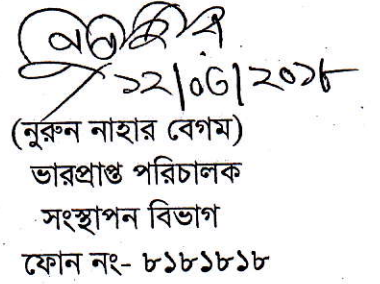 ১২/০৩/২০১৮
(নুরুন নাহার বেগম)
ভারপ্রাপ্ত পরিচালক
সংস্থাপন বিভাগ
ফোন নং- ৮১৮১৮১৮